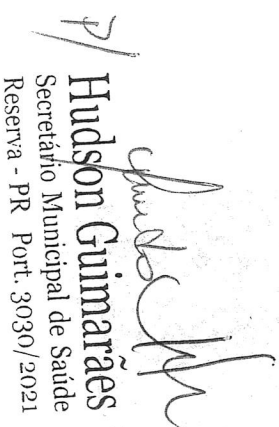 P/
Hudson Guimarães
Secretário Municipal de Saúde
Reserva - PR Port. 3030/2021